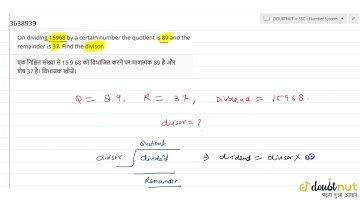 3638939
DOUBTNUT > SSC : Number System
On dividing 15968 by a certain number the quotient is 89 and the
remainder is 37. Find the divisor.
एक निश्चित संख्या से 15 9 68 को विभाजित करने पर भागफल 89 है और
शेष 37 है। विभाजक खोजें।
Q = 89, R = 37, Dividend = 15968.
divisor = ?
Quotient
divisor dividend ⇒ dividend = divisor ×
Remainder
doubtnut
पढ़ना हुआ आसान